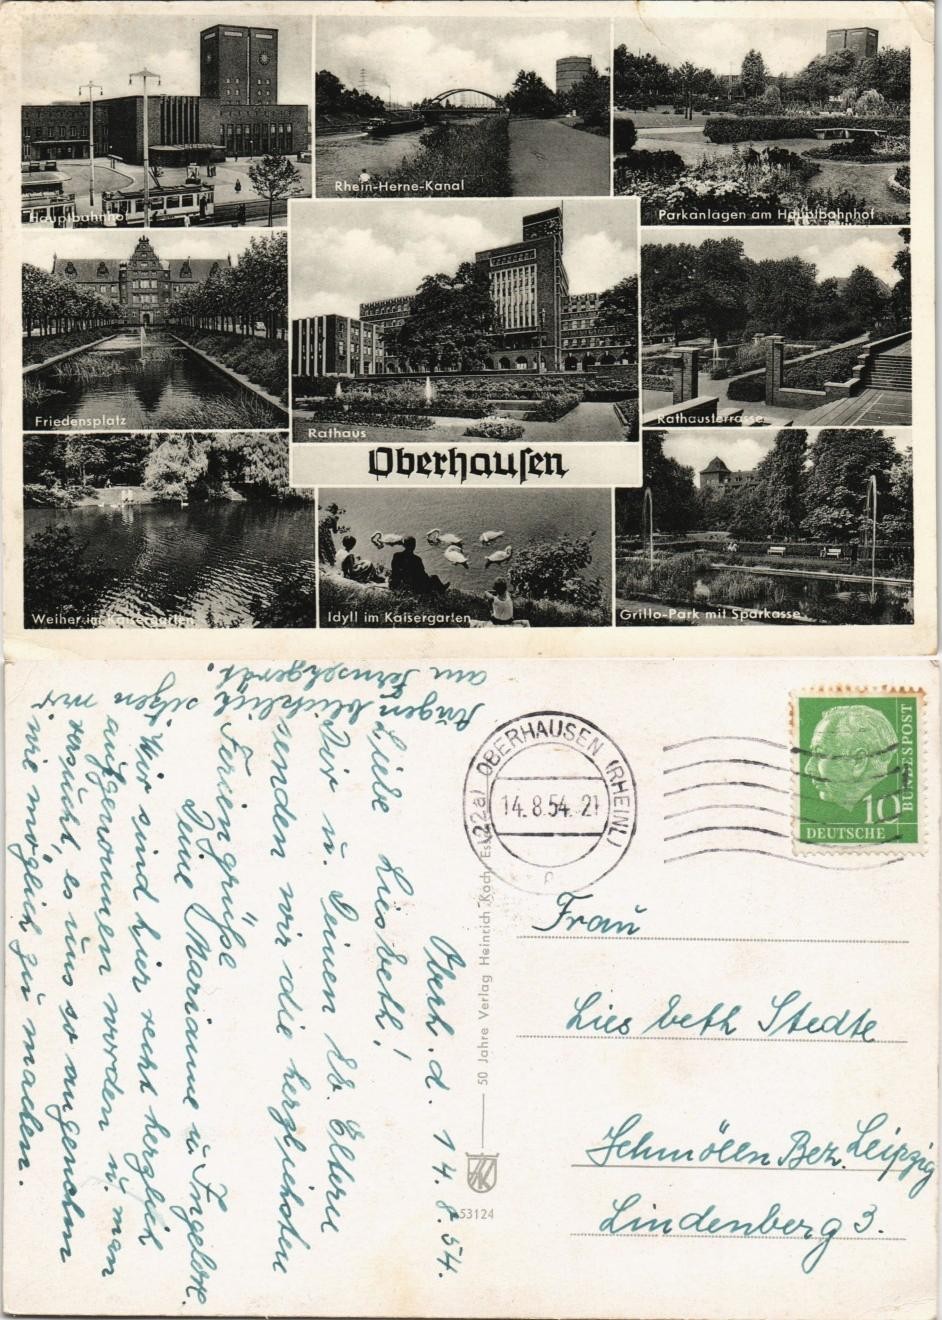 Hauptbahnhof
Rhein-Herne-Kanal
Parkanlagen am Hauptbahnhof
Friedensplatz
Rathaus
Rathausterrasse
Oberhausen
Weiher im Kaisergarten
Idyll im Kaisergarten
Grillo-Park mit Sparkasse
Oberh. d. 14.8.54.
Liebe Liesbeth!
Dir u. Deinen lb. Eltern
senden wir die herzlichsten
Feriengrüße
Deine Marianne u. Ingeborg.
Wir sind hier recht herzlich
aufgenommen worden u. man
versucht, es uns so angenehm
wie möglich zu machen.
Augenblicklich sitzen wir
am Fernsehgerät.
50 Jahre Verlag Heinrich Koch, Essen
HK
53124
(22a) OBERHAUSEN (RHEINL)
14.8.54.-21
e
DEUTSCHE
BUNDESPOST
10
Frau
Liesbeth Stedte
Schmölln Bez. Leipzig
Lindenberg 3.